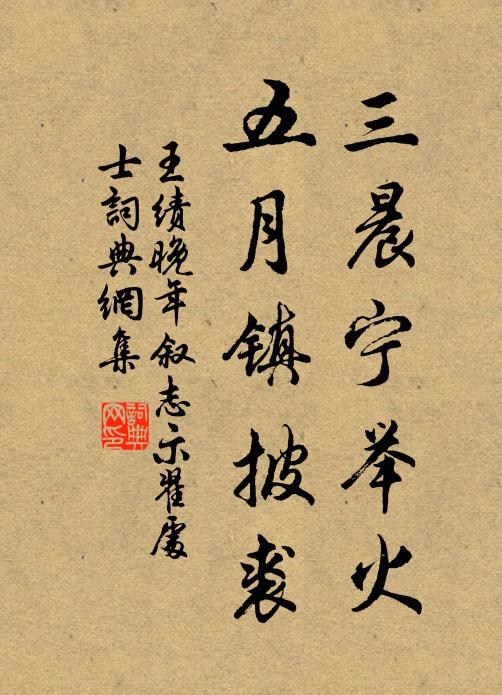 三晨宁举火
五月镇披裘
王绩晚年叙志示翟處
士詞典網集
詞典
网印